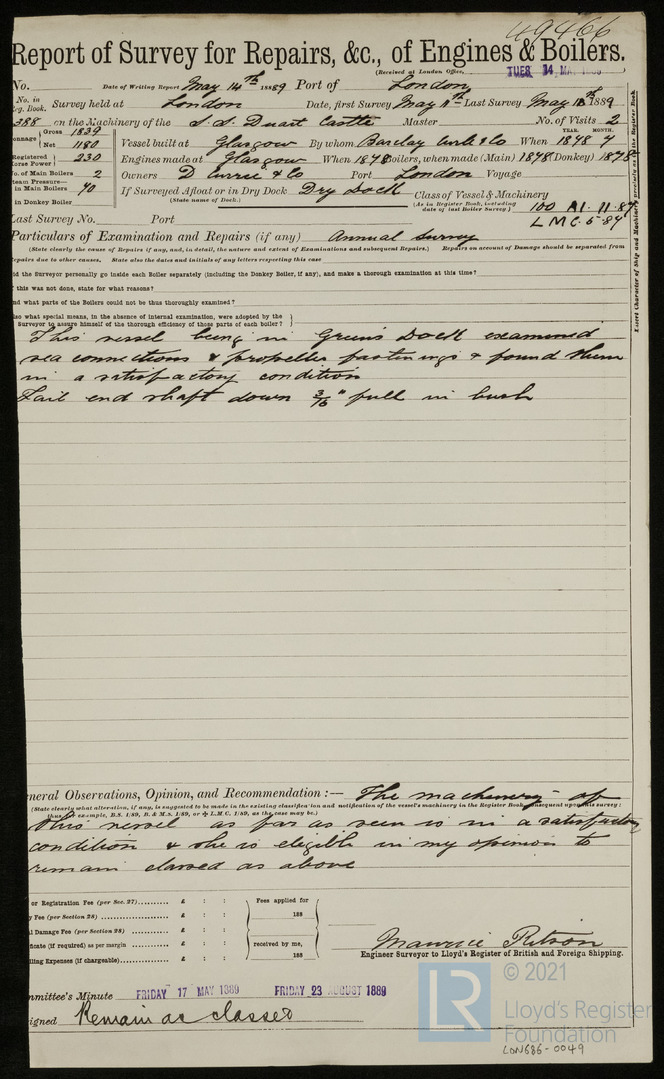 49466
Report of Survey for Repairs, &c., of Engines & Boilers.
(Received at London Office, TUES 14 MAY 1889)
No. Date of Writing Report May 14th 1889 Port of London
No. in Reg. Book. Survey held at London Date, first Survey May 11th Last Survey May 13th 1889
388 on the Machinery of the S.S. Duart Castle Master No. of Visits 2
Tonnage Gross 1839
Net 1180
Vessel built at Glasgow By whom Barclay Curle & Co When YEAR. 1878 MONTH. 7
Registered Horse Power 230
Engines made at Glasgow When 1878 Boilers, when made (Main) 1878 (Donkey) 1878
No. of Main Boilers 2
Owners D Currie & Co Port London Voyage
Steam Pressure— in Main Boilers 70
in Donkey Boiler
If Surveyed Afloat or in Dry Dock Dry Dock
(State name of Dock.)
Class of Vessel & Machinery
(As in Register Book, including date of last Boiler Survey)
100 A1. 11.87
L M C. 5-87
Last Survey No. Port
Particulars of Examination and Repairs (if any) Annual Survey
(State clearly the cause of Repairs if any, and, in detail, the nature and extent of Examinations and subsequent Repairs.) Repairs on account of Damage should be separated from
repairs due to other causes. State also the dates and initials of any letters respecting this case
Did the Surveyor personally go inside each Boiler separately (including the Donkey Boiler, if any), and make a thorough examination at this time?
If this was not done, state for what reasons?
And what parts of the Boilers could not be thus thoroughly examined?
Also what special means, in the absence of internal examination, were adopted by the
Surveyor to assure himself of the thorough efficiency of those parts of each boiler?
This vessel being in Green's Dock examined
sea connections & propeller fastenings & found them
in a satisfactory condition
Tail end shaft down 3/16" full in bush
General Observations, Opinion, and Recommendation :— The machinery of
(State clearly what alteration, if any, is suggested to be made in the existing classification and notification of the vessel's machinery in the Register Book, subsequent upon this survey:
thus for example, B.S. 1/89, B. & M.S. 1/89, or ✠ L.M.C. 1/89, as the case may be.)
this vessel as far as seen is in a satisfactory
condition & she is eligible in my opinion to
remain classed as above
or Registration Fee (per Sec. 27) £ : :
Fee (per Section 28) £ : :
Damage Fee (per Section 28) £ : :
Certificate (if required) as per margin £ : :
Travelling Expenses (if chargeable) £ : :
Fees applied for
188
received by me,
188
Maurice Ritson
Engineer Surveyor to Lloyd's Register of British and Foreign Shipping.
Committee's Minute FRIDAY 17 MAY 1889 FRIDAY 23 AUGUST 1889
Assigned Remain as classed
LR © 2021
Lloyd's Register
Foundation
LDN686-0049